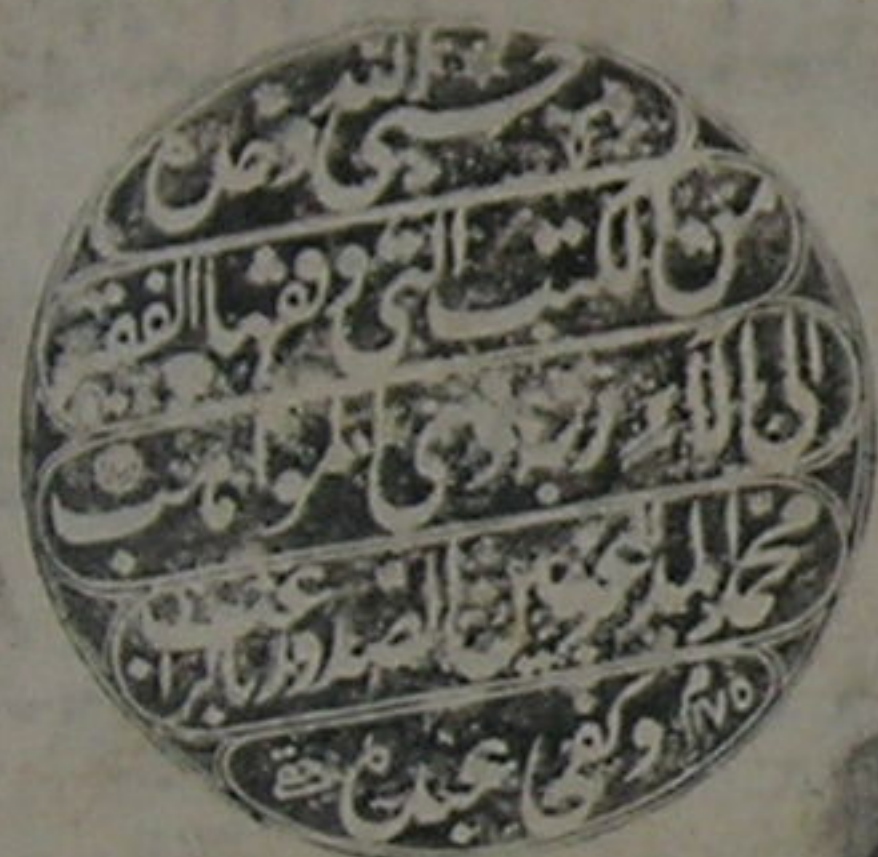 حسبي الله وحده
من الكتب التي وقفها الفقير
الى آلاء ربه ذي المواهب
محمد المدعو بين الصدور بالراغب
١١٧٥ وكفى عبده